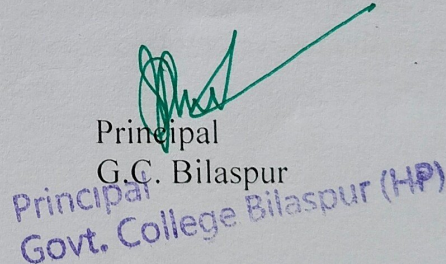 Principal
G.C. Bilaspur
Principal
Govt. College Bilaspur (HP)